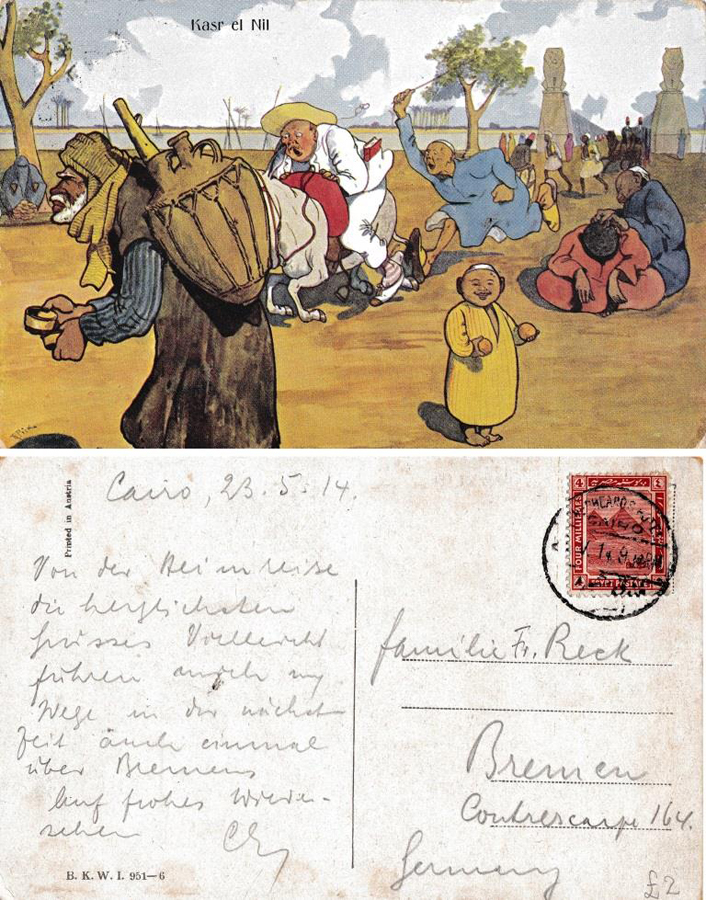 Kasr el Nil
Printed in Austria
Cairo, 23. 5. 14.
Von der Heimreise
die herzlichsten
Grüsse
führen
Wege in der nächsten
Zeit auch einmal
über Bremen
Auf frohes Wieder-
sehen
B. K. W. I. 951—6
4
FOUR MILLIEMES
CAIRO
Familie Fr. Reck
Bremen
Contrescarpe 164.
Germany
£2